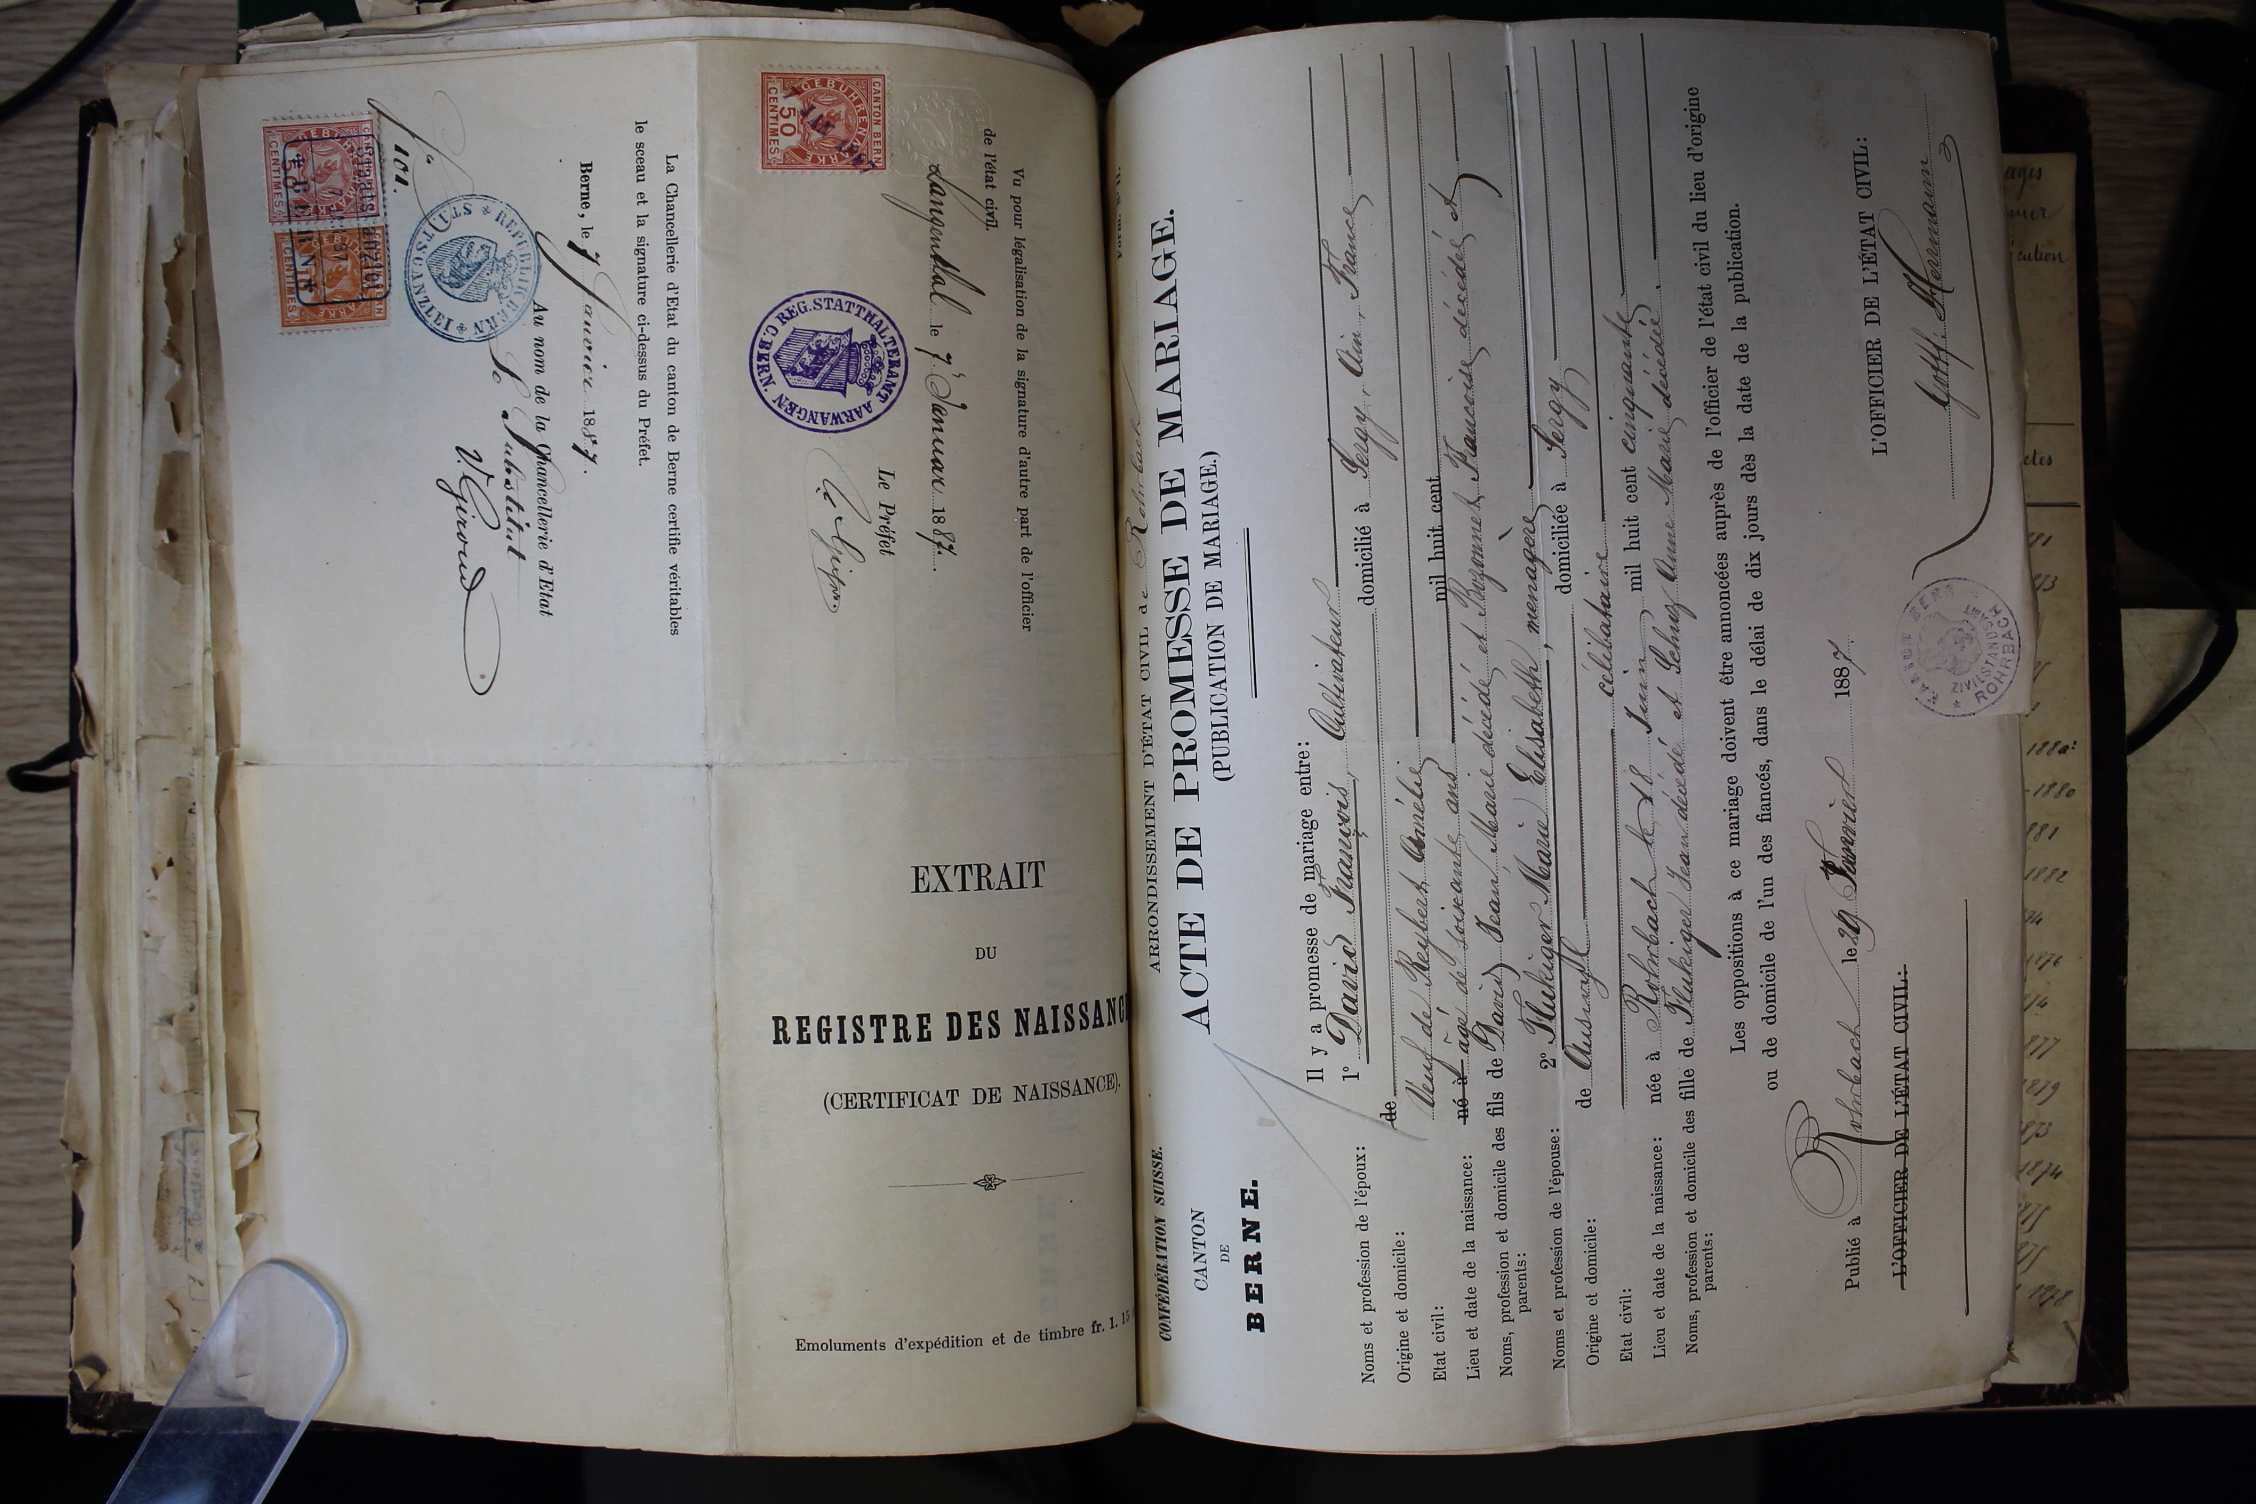 Vu pour légalisation de la signature d'autre part de l'officier
de l'état civil.
Langenthal le 7. Januar 1887.
Le Préfet
CANTON BERN
GEBÜHRENMARKE
50
CENTIMES
REG. STATTHALTERAMT AARWANGEN. C. BERN.
La Chancellerie d'Etat du canton de Berne certifie véritables
le sceau et la signature ci-dessus du Préfet.
Berne, le 7 Janvier 1887.
Au nom de la Chancellerie d'Etat
Le Substitut
V. Giroud
REPUBLIK BERN
STAATSCANZLEI
101.
BERN
CENTIMES
CENTIMES
EXTRAIT
DU
REGISTRE DES NAISSANC
(CERTIFICAT DE NAISSANCE).
Emoluments d'expédition et de timbre fr. 1. 15
CONFÉDÉRATION SUISSE.
CANTON
DE
BERNE.
ARRONDISSEMENT D'ÉTAT CIVIL de Rohrbach
ACTE DE PROMESSE DE MARIAGE.
(PUBLICATION DE MARIAGE.)
Il y a promesse de mariage entre:
Noms et profession de l'époux: 1° David François, Cultivateur
Origine et domicile: de domicilié à Sergy, Ain, France
Etat civil: Veuf de Reybert Amélie
Lieu et date de la naissance: né à âgé de soixante ans mil huit cent
Noms, profession et domicile des parents: fils de David Jean Marie décédé et Bozonnet Françoise décédée et
Noms et profession de l'épouse: 2° Flukiger Marie Elisabeth, menagère
Origine et domicile: de Auswyl domiciliée à Sergy
Etat civil: célibataire
Lieu et date de la naissance: née à Rohrbach le 18 Juin mil huit cent cinquante
Noms, profession et domicile des parents: fille de Flukiger Jean décédé et Schuz Anne Marie décédée.
Les oppositions à ce mariage doivent être annoncées auprès de l'officier de l'état civil du lieu d'origine
ou de domicile de l'un des fiancés, dans le délai de dix jours dès la date de la publication.
Publié à Rohrbach le 29 Janvier 1887
L'OFFICIER DE L'ÉTAT CIVIL:
L'OFFICIER DE L'ÉTAT CIVIL:
Gottf. Herrmann
ZIVILSTANDSAMT
ROHRBACH